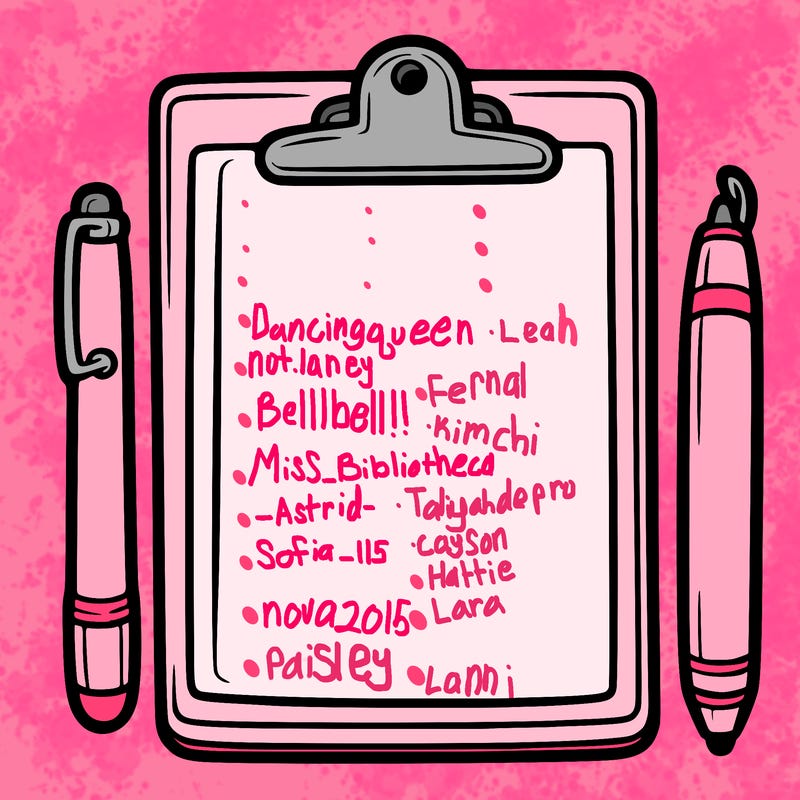 Dancingqueen · Leah
not.laney
Fernal
Belllbell!!
· Kimchi
Miss_Bibliotheca
-Astrid- · Taliyahdepro
Sofia_115 · cayson
Hattie
nova2015 Lara
Paisley Lanni